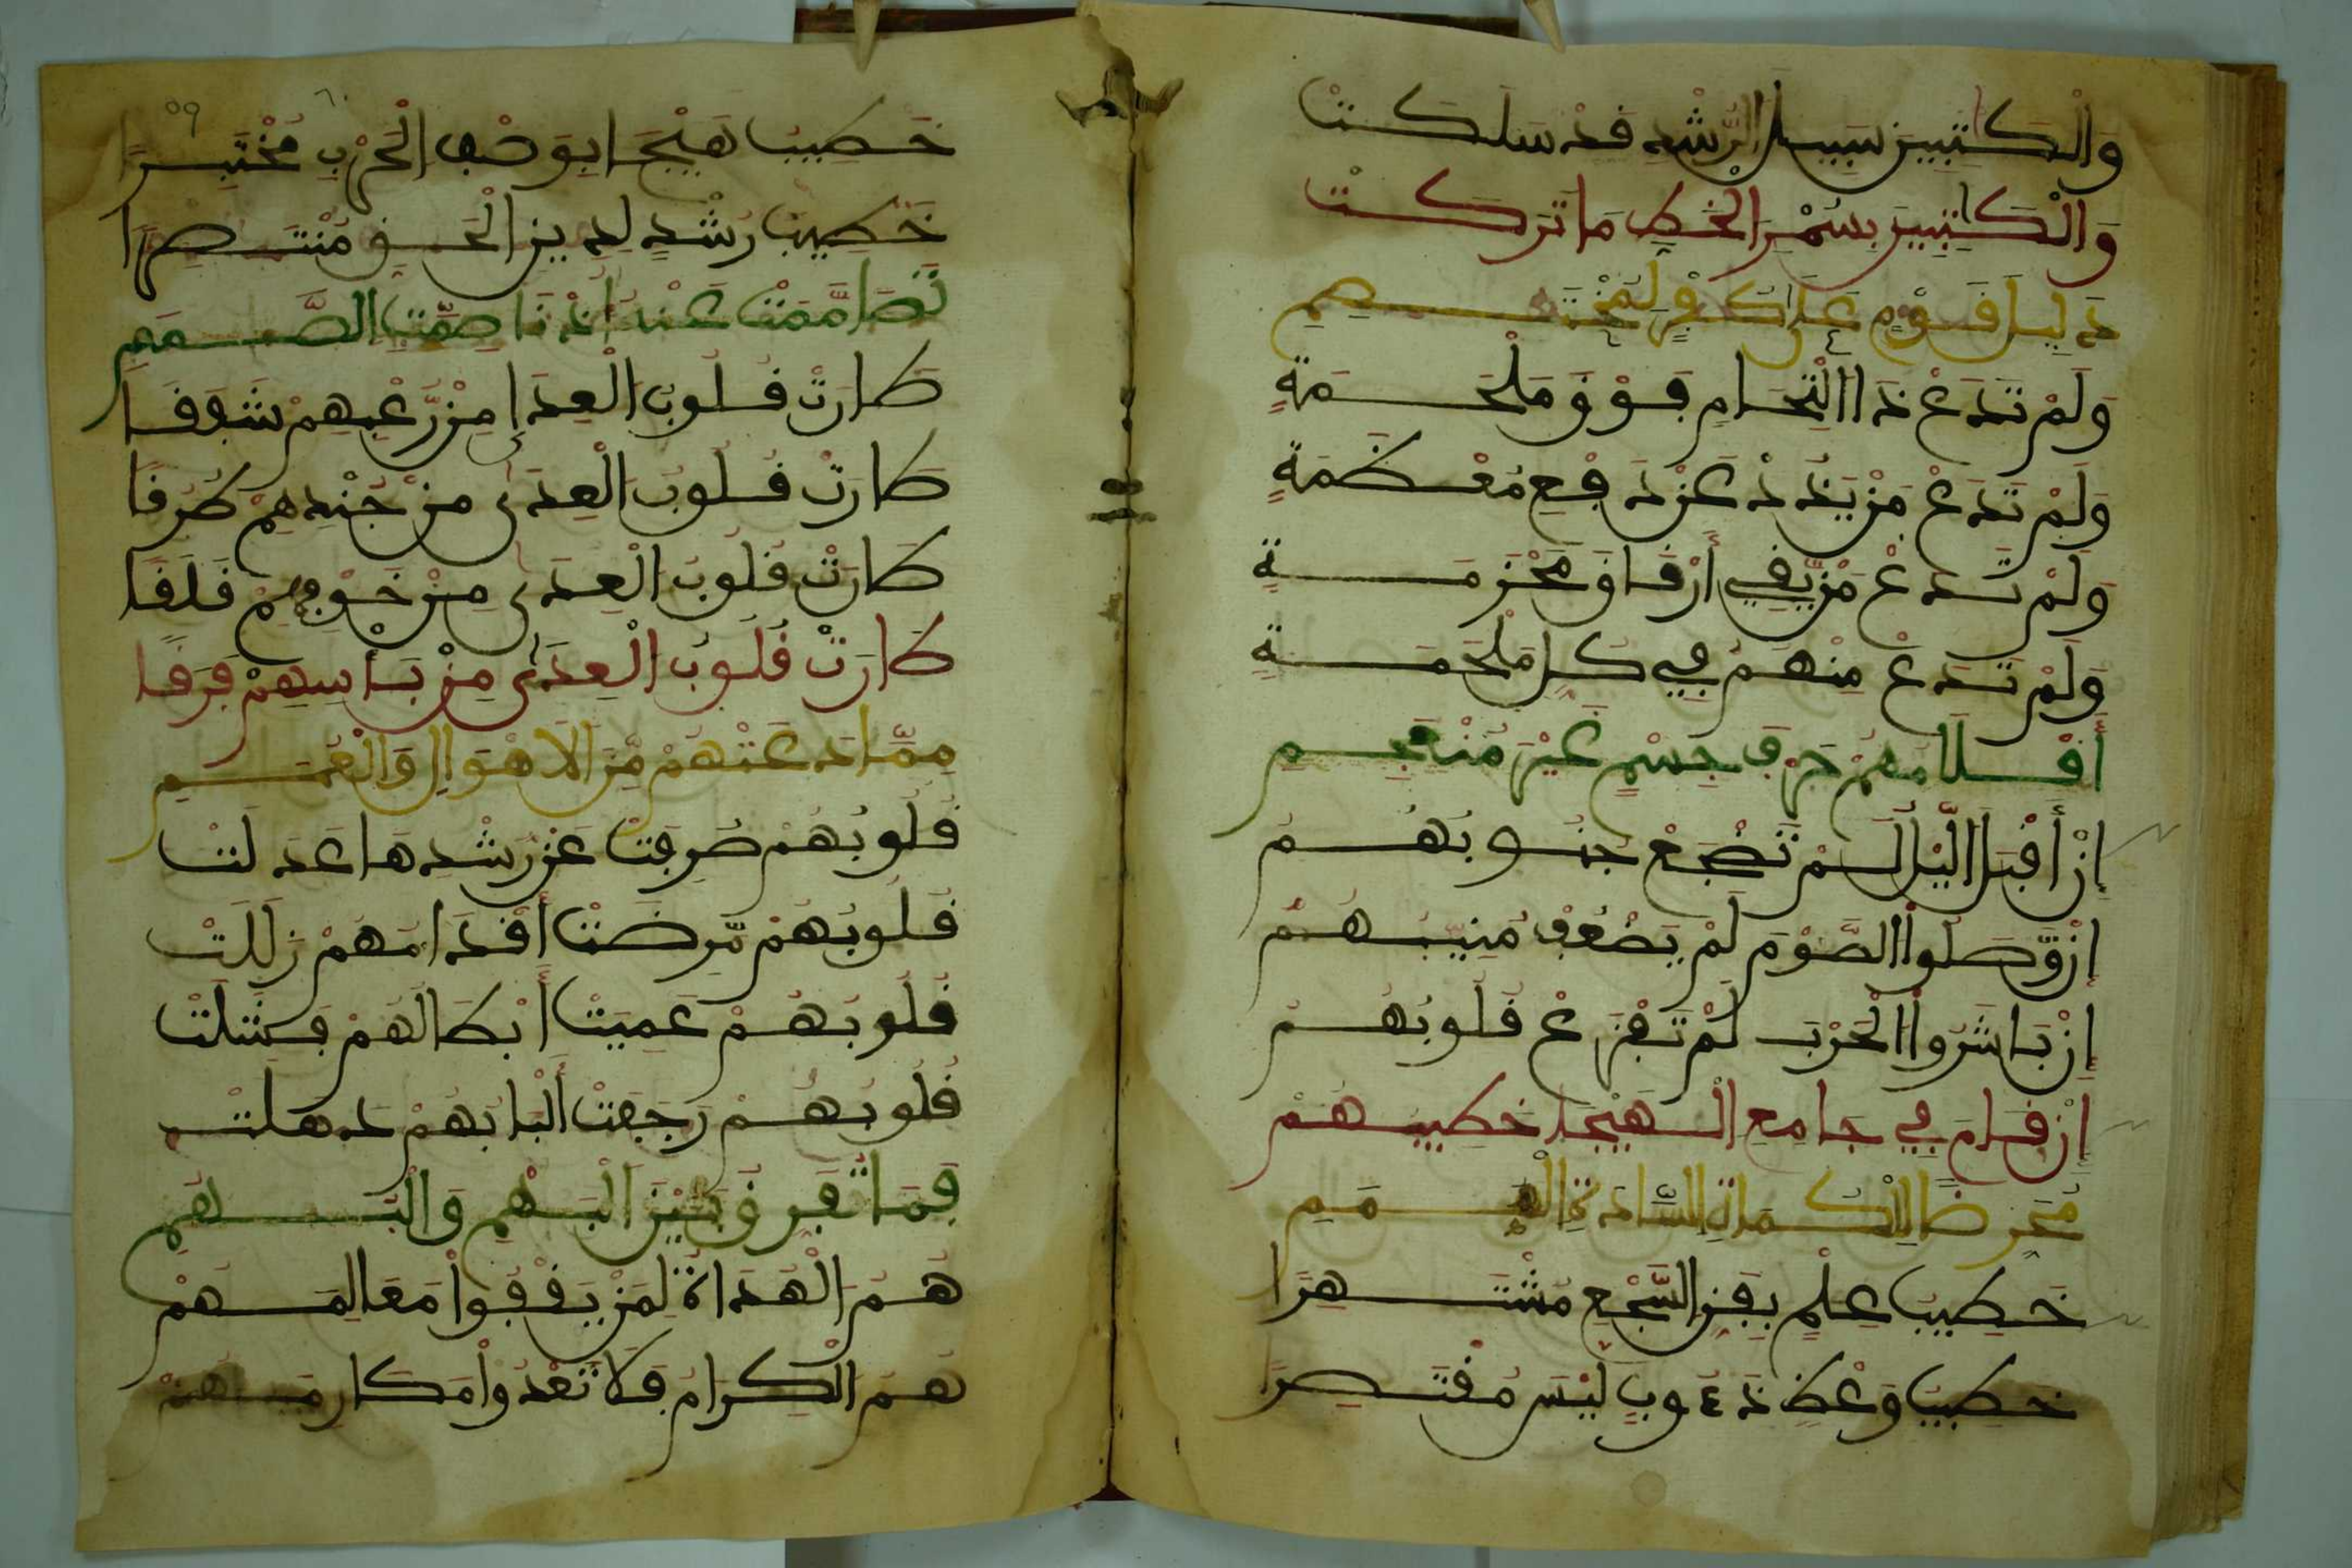 وَالْكَاتِبِينَ سَبِيلَ الرُّشْدِ قَدْ سَلَكَتْ
وَالْكَاتِبِينَ بِسُمْرِ الْخَطِّ مَا تَرَكَتْ
وَلَمْ تَدَعْ ذَا الْتِحَامٍ فَوْقَ مَلْحَمَةٍ
وَلَمْ تَدَعْ مَنْ يَذُدْ عَنْ دَفْعِ مُعْظَمَةٍ
وَلَمْ تَدَعْ مَنْ يَّفِي أَرْفَاقَ مَحْزَمَةٍ
وَلَمْ تَدَعْ مِنْهُمْ فِي كُلِّ مَلْحَمَةٍ
أَقْلَامُهُمْ حَرْفَ جِسْمٍ غَيْرَ مُنْعَجِمِ
إِنْ أَقْبَلَ الَّيْلُ لَمْ تَضْجَعْ جُنُوبُهُمُ
إِنْ وَّصَلُوا الصَّوْمَ لَمْ يَضْعُفْ مُنِيبُهُمُ
إِنْ بَاشَرُوا الْحَرْبَ لَمْ تَفْزَعْ قُلُوبُهُمُ
إِنْ قَامَ فِي جَامِعِ الْهَيْجَا خَطِيبُهُمْ
خَطِيبُ عِلْمٍ بِفَنِّ السَّجْعِ مُشْتَهِرَا
خَطِيبُ وَعْظٍ دَءُوبٍ لَيْسَ مُقْتَصِرَا
خَطِيبُ هَيْجَا بِوَصْفِ الْحَرْبِ مُخْتَبِرَا
خَطِيبُ رُشْدٍ لِدِينِ الْحَقِّ مُنْتَصِرَا
تَصَامَّمَتْ عَنْهُ أُذْنَا صِمَّتِ الصَّمَمِ
طَارَتْ قُلُوبُ الْعِدَا مِنْ رُّعْبِهِمْ شَفَقَا
طَارَتْ قُلُوبُ الْعِدَى مِنْ جُنْدِهِمْ طُرُقًا
طَارَتْ قُلُوبُ الْعِدَى مِنْ خَوْفِهِمْ قَلَقًا
طَارَتْ قُلُوبُ الْعِدَى مِنْ بَأْسِهِمْ فَرَقًا
مِمَّا دَعَتْهُمْ مِّنَ الْأَهْوَالِ وَالْغُمَمِ
قُلُوبُهُمْ صُرِفَتْ عَنْ رُشْدِهَا عَدَلَتْ
قُلُوبُهُمْ مَّرِضَتْ أَقْدَامُهُمْ زَلَلَتْ
قُلُوبُهُمْ عَمِيَتْ أَبْطَالُهُمْ فَشِلَتْ
قُلُوبُهُمْ رَجَفَتْ أَلْبَابُهُمْ ذَهَلَتْ
فَمَا تُفَرِّقُ بَيْنَ الْبَهْمِ وَالْبُهَمِ
هُمُ الْهُدَاةُ لِمَنْ يَقْفُوا مَعَالِمَهُمْ
هُمُ الْكِرَامُ فَلَا تَعْدُوا مَكَارِمَهُمْ